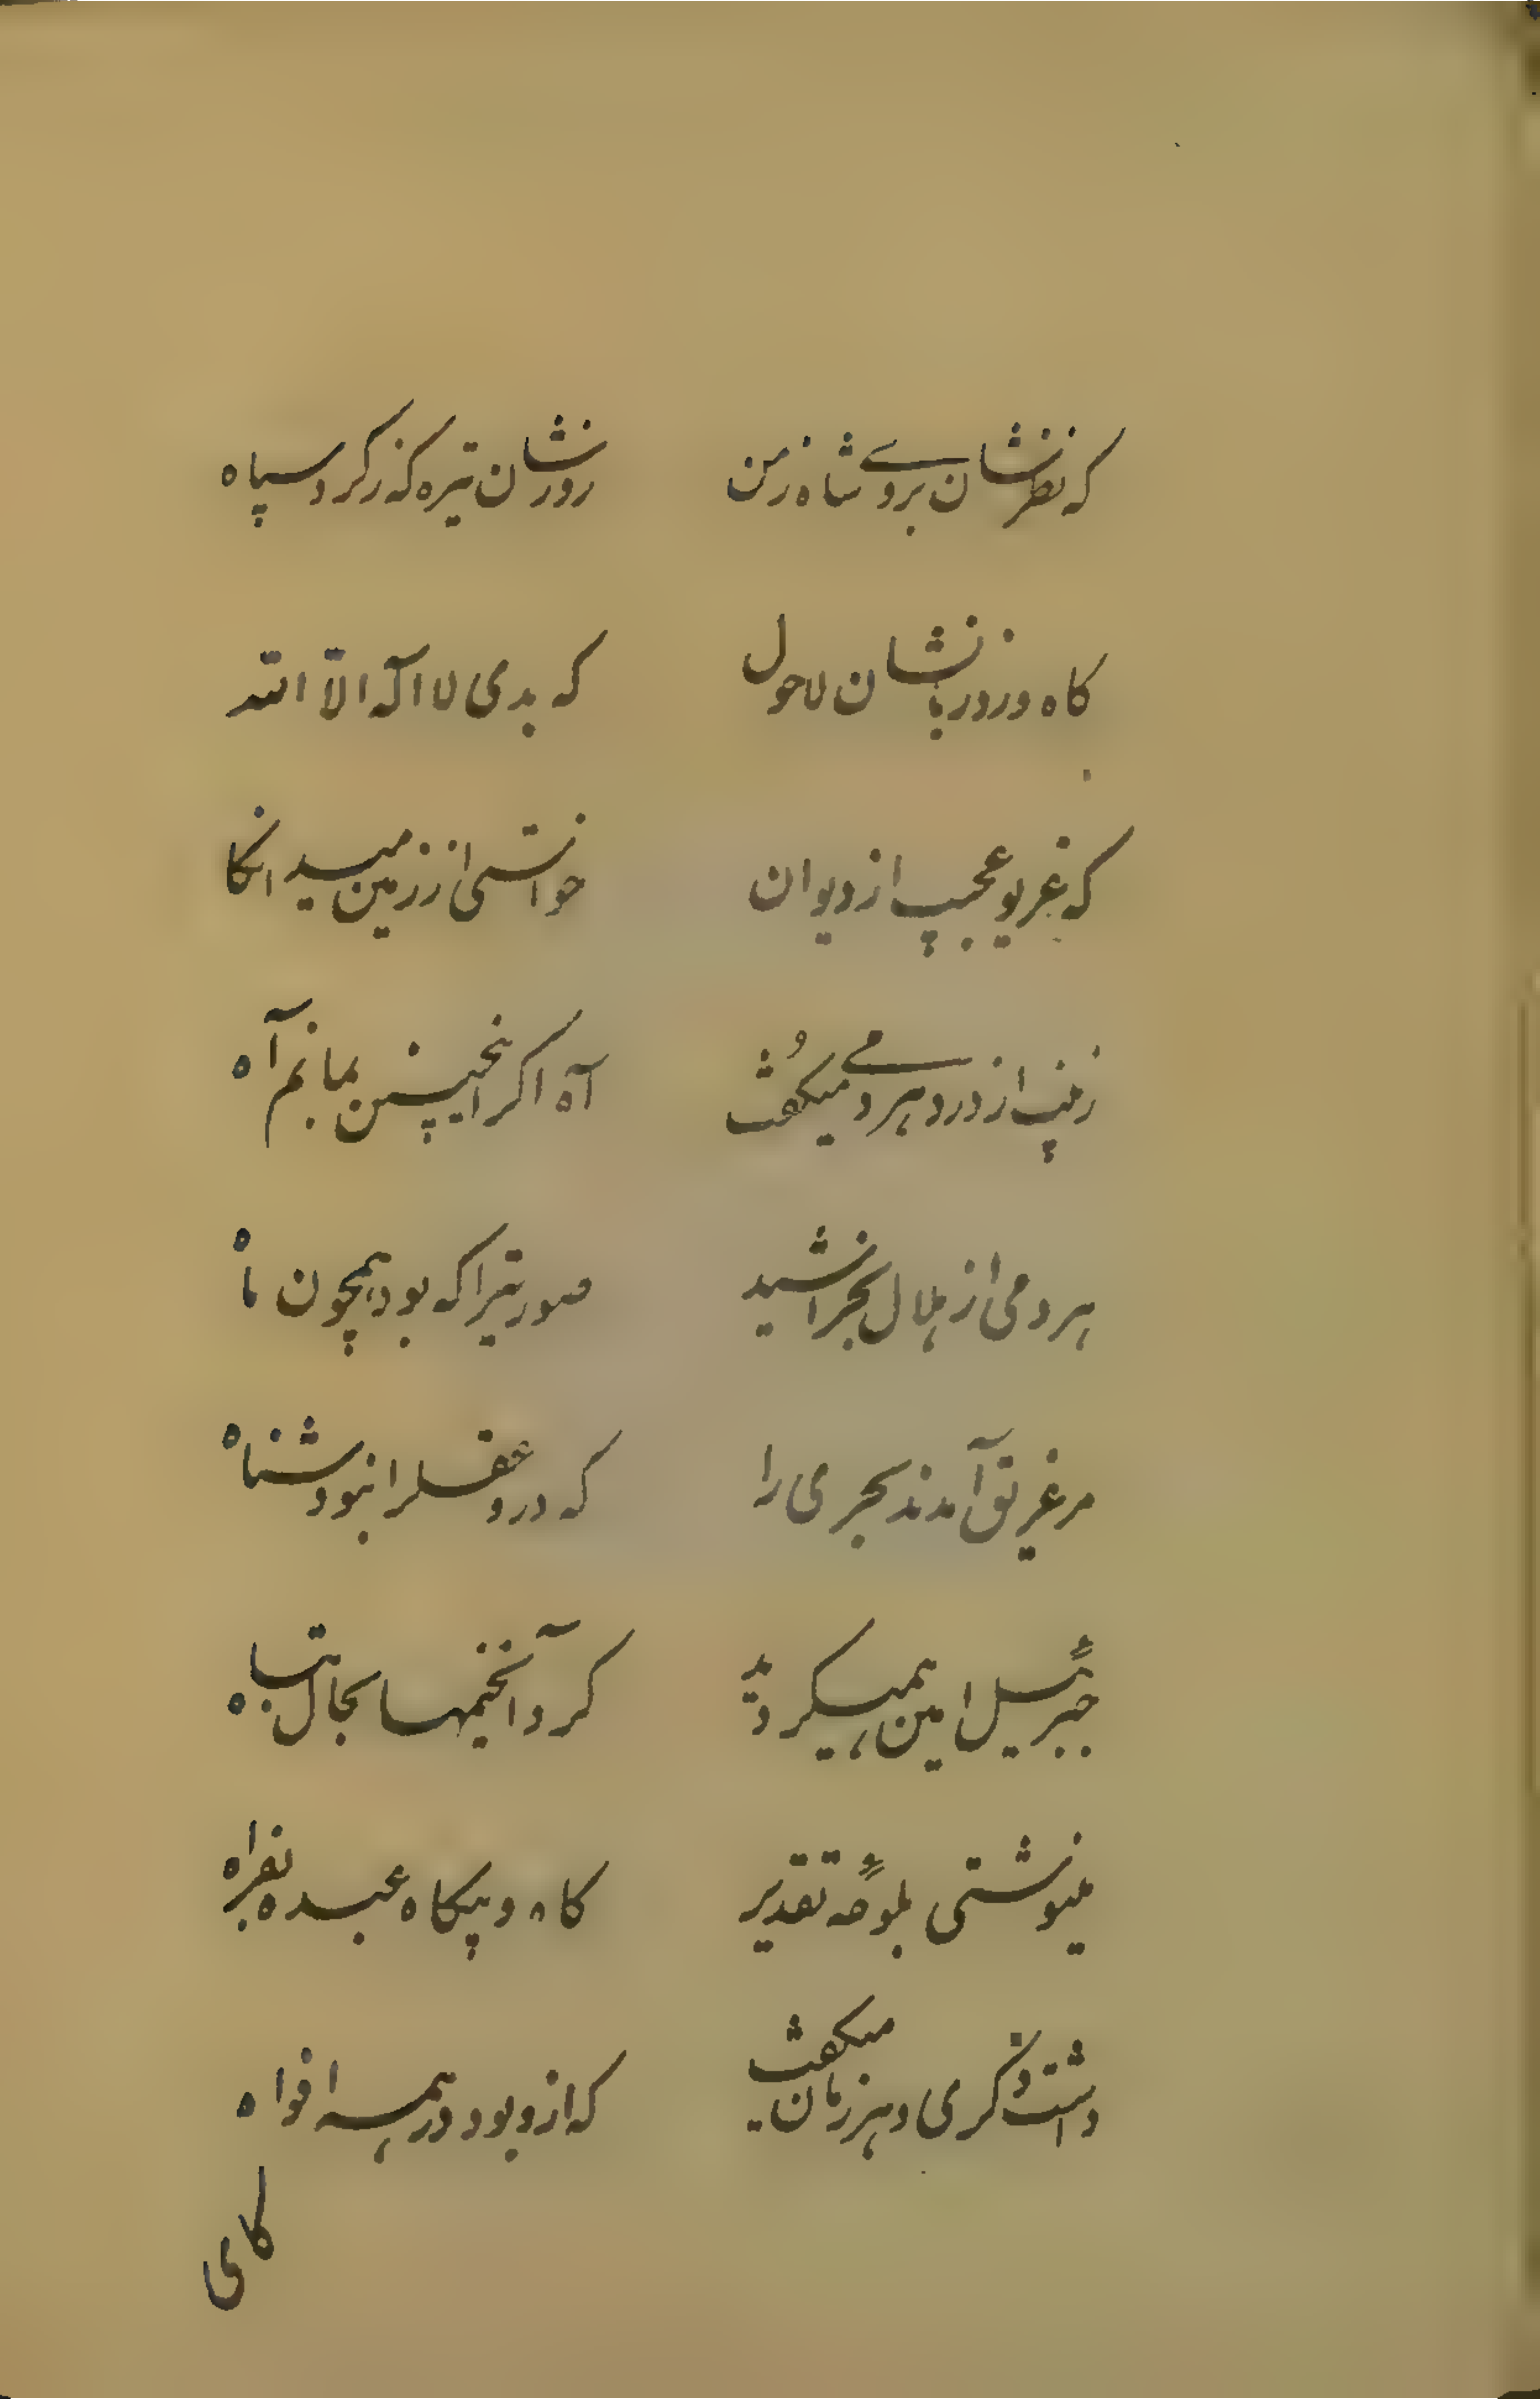 که نظرشان بروے شاه زمن روزشان تیره کز زکرد سپاه
کاه ورد زبانشان لاحول که بدی لا اله الا الله
که غریو عجیب از دیوان خواستی از زمین
زینب از درد هر دمے میکفت آه اکر اینچنین بمانم آه
هر دمی از هلال بخراشید صورتیرا که بود همچون ماه
مر غریق آمدند بحری را که درو عقل را نبود شناه
جبرئیل امین همیکردید کرد آن خیمها بحال تباه
مینوشتی بلوحهٔ تقدیر کاه و بیکاه عبده بفراه
داشت ذکری و هر زمان میکفت که ازو بود در همه افواه
کای